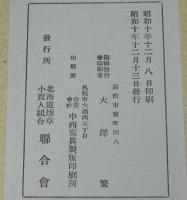 昭和十年十二月八日印刷
昭和十年十二月十三日發行
函館市寶町四八
編輯發行
兼印刷者
大澤繁
札幌市大通西五丁目
印刷所
合資會社
中西寫眞製版印刷所
發行所
北海道煙草
小賣人組合
聯合會